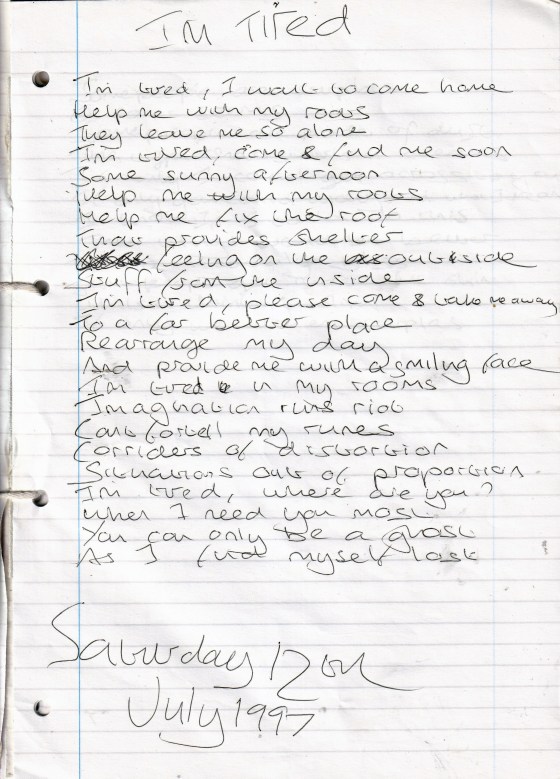 Im Tired
Im tired, I want to come home
Help me with my roots
They leave me so alone
Im tired, come & find me soon
Some sunny afternoon
Help me with my roots
Help me fix the roof
That provides shelter
feeling on the outside
Stuff from the inside
Im tired, please come & take me away
To a far better place
Rearrange my day
And provide me with a smiling face
Im tired in my rooms
Imagination runs riot
Cant foretell my runes
Corridors of distortion
Situations out of proportion
Im tired, where are you?
When I need you most
You can only be a ghost
As I find myself lost
Saturday 12th
July 1997